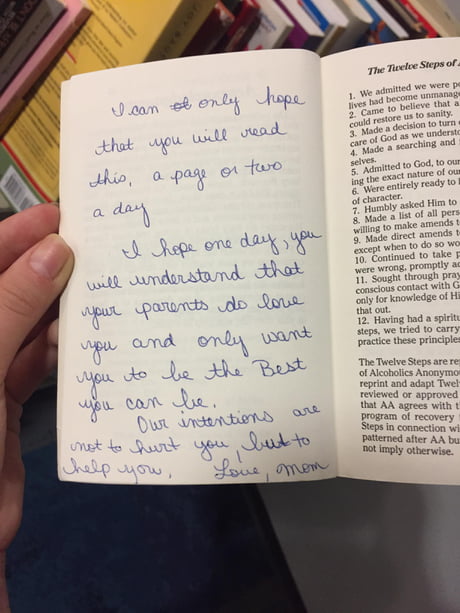 I can only hope
that you will read
this, a page or two
a day
I hope one day, you
will understand that
your parents do love
you and only want
you to be the Best
you can be.
Our intentions are
not to hurt you, but to
help you.  Love, Mom
The Twelve Steps of
1. We admitted we were
lives had become unmanage
2. Came to believe that a
could restore us to sanity.
3. Made a decision to turn
care of God as we underst
4. Made a searching and
selves.
5. Admitted to God, to our
ing the exact nature of our
6. Were entirely ready to
of character.
7. Humbly asked Him to
8. Made a list of all pers
willing to make amends t
9. Made direct amends t
except when to do so wo
10. Continued to take p
were wrong, promptly a
11. Sought through pray
conscious contact with G
only for knowledge of Hi
that out.
12. Having had a spiritu
steps, we tried to carry
practice these principles
The Twelve Steps are re
of Alcoholics Anonymou
reprint and adapt Twel
reviewed or approved
that AA agrees with t
program of recovery
Steps in connection wi
patterned after AA bu
not imply otherwise.